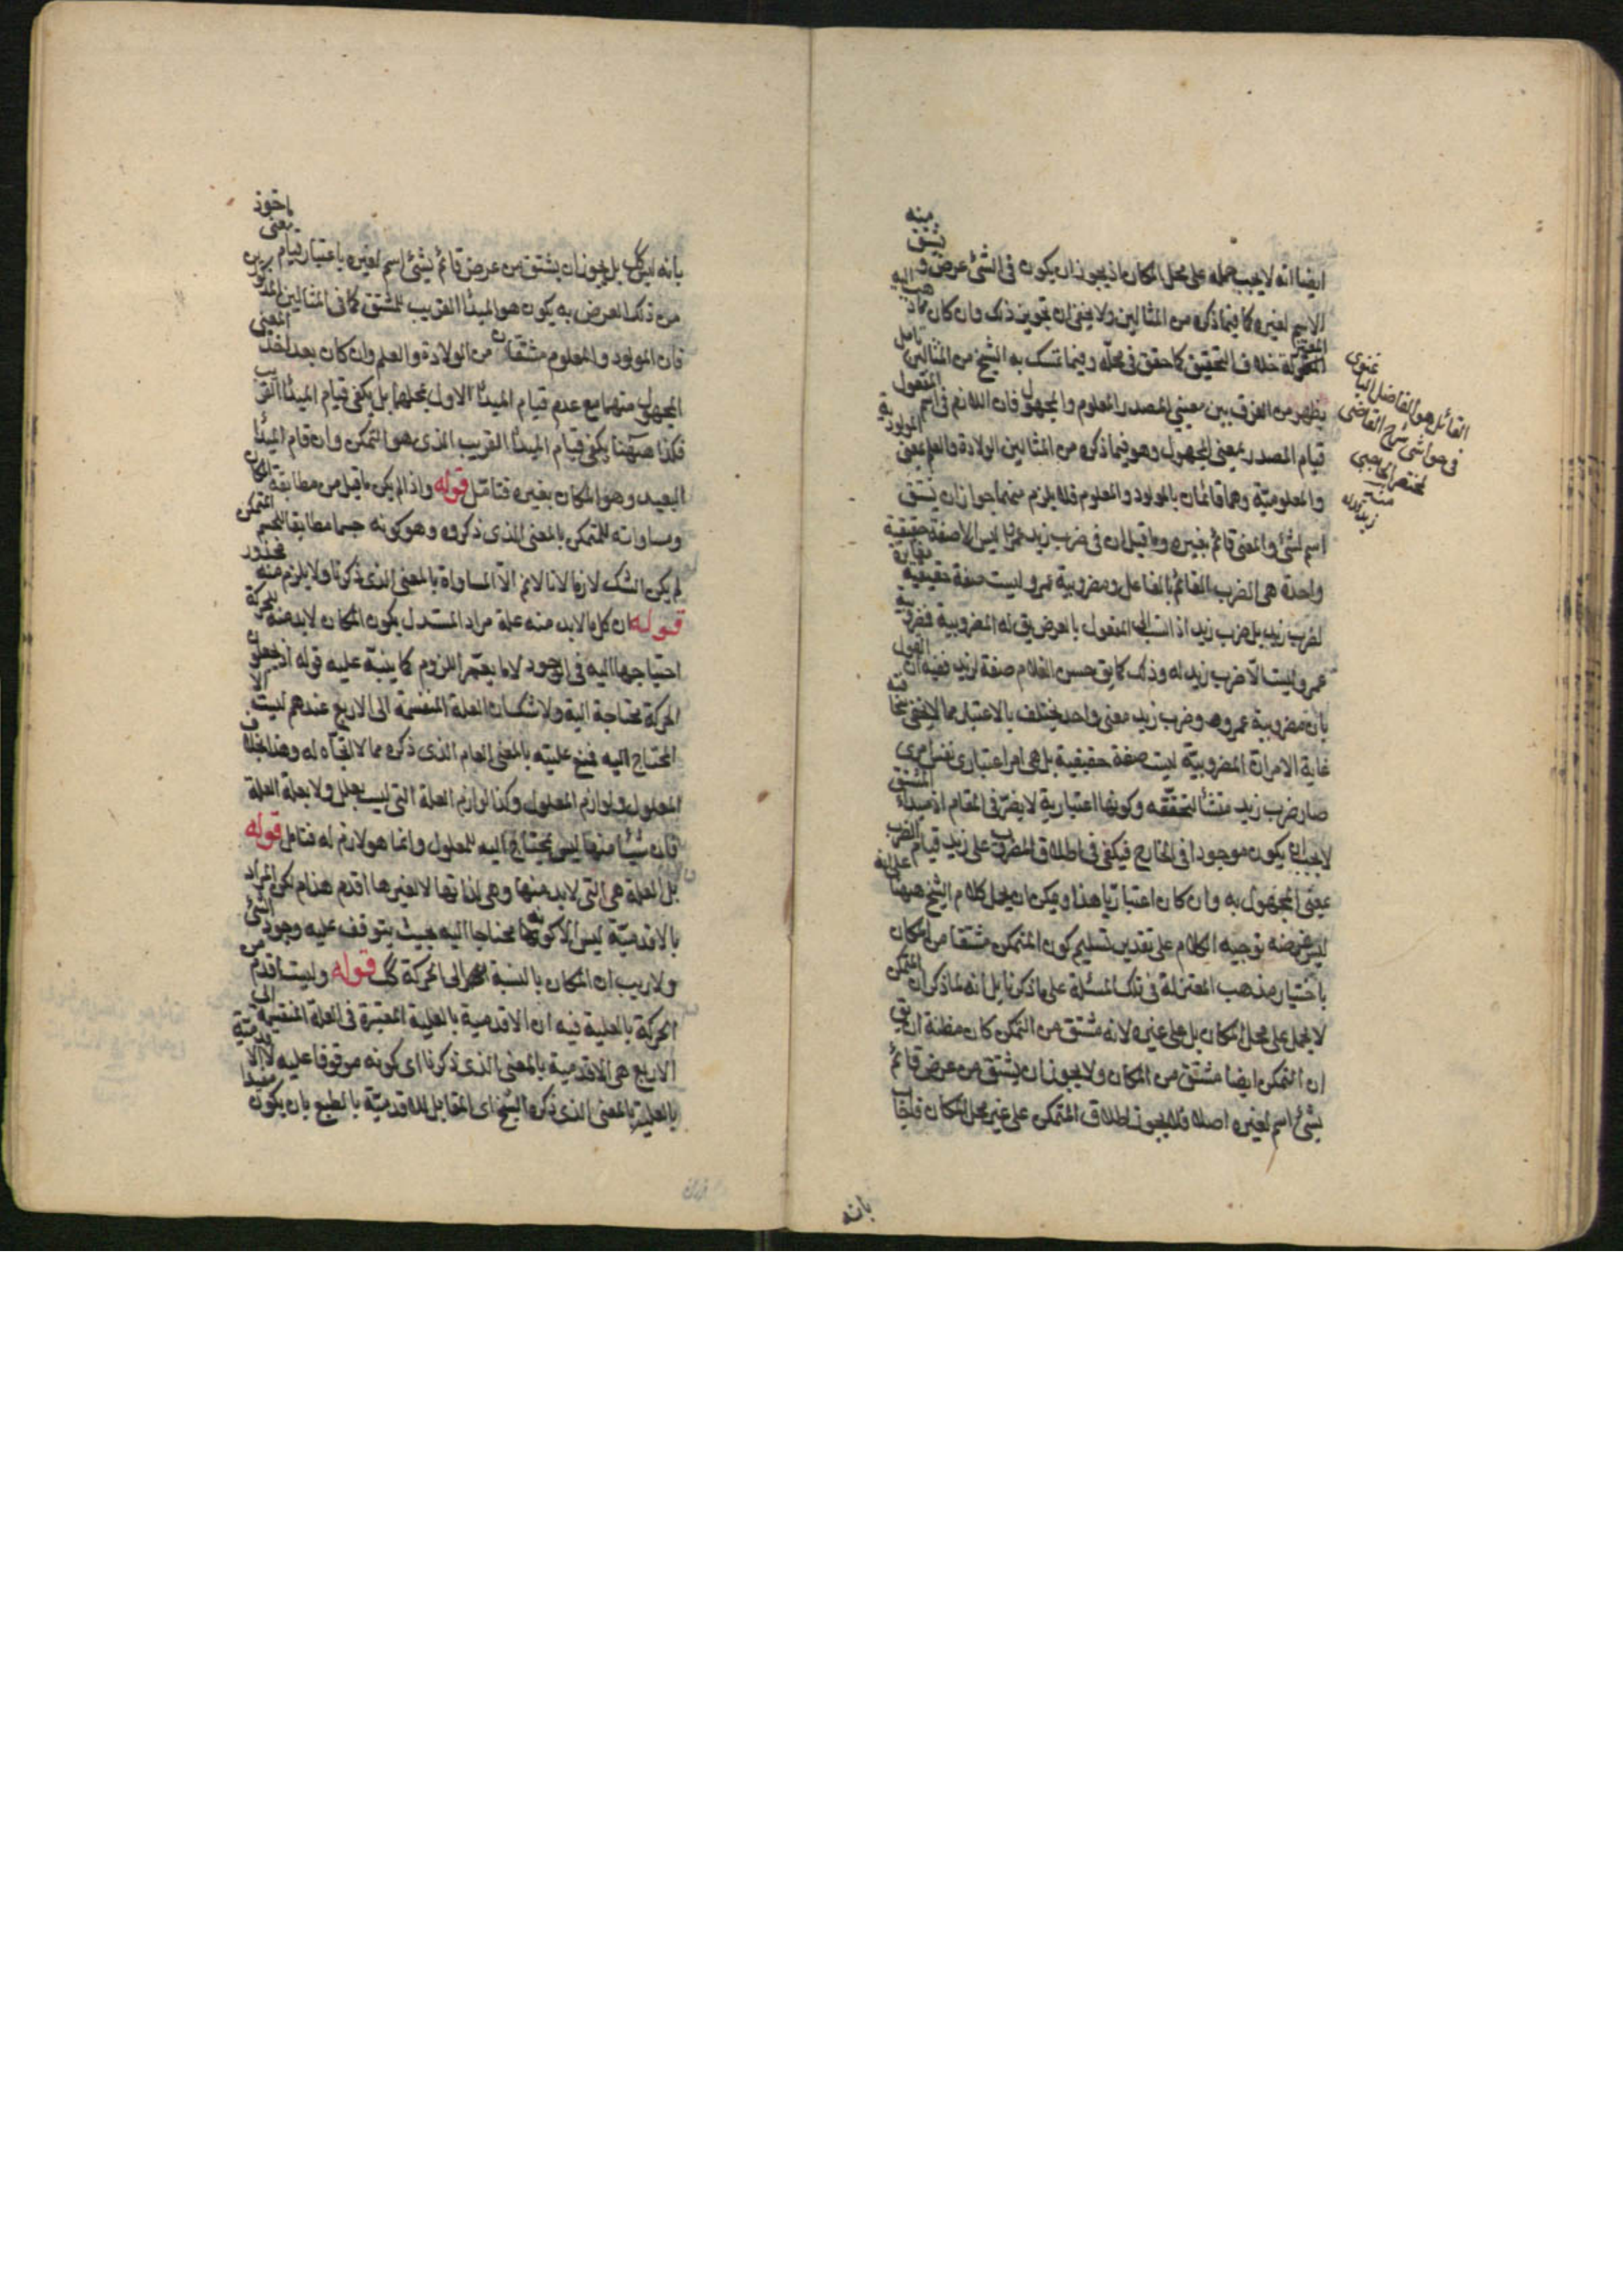 ايضا انه لا يجب حمله على محل المكان اذ يجوز ان يكون في الشئ عرض و يشتق منه
الاسم لغيره كما فيما ذكره من المثالين ولا يخفى ان تجويز ذلك وان كان مما ذهب اليه
المعتزلة خلاف التحقيق كما حقق في محله وفيما تمسك به الشيخ من المثالين تامل
يظهر من الفرق بين معنيي المصدر المعلوم والمجهول فان اللازم في اسم المفعول
قيام المصدر بمعنى المجهول وهو فيما ذكره من المثالين الولادة والعلم بمعنى المولودية
والمعلومية وهما قائمان بالمولود والمعلوم فلا يلزم منهما جواز ان يشتق
اسم لشئ والمعنى قائم بغيره وما قيل ان في ضرب زيد عمرا ليس الا صفة حقيقية
واحدة هي الضرب القائم بالفاعل ومضروبية عمرو ليست صفة حقيقية مغايرة
لضرب زيد بل ضرب زيد اذا نسب الى المفعول بالعرض يق له المضروبية فمضروبية
عمرو ليست الا ضرب زيد له وذلك كما يق حسن الغلام صفة لزيد ففيه ان القول
بان مضروبية عمرو هو ضرب زيد معنى واحد يختلف بالاعتبار مما لا يخفى سخافته
غاية الامر ان المضروبية ليست صفة حقيقية بل هي امر اعتباري نفس امري
صار ضرب زيد منشأ لتحققه وكونها اعتبارية لا يضر في المقام اذ مبداء المشتق
لا يجب ان يكون موجودا في الخارج فيكفي في اطلاق المضروب على زيد قيام الضرب
بمعنى المجهول به وان كان اعتباريا هذا ويمكن ان يحمل كلام الشيخ ههنا على انه
ليس غرضه توجيه الكلام على تقدير تسليم كون المتمكن مشتقا من المكان
باختيار مذهب المعتزلة في تلك المسئلة على ما ذكرنا بل انه لما ذكر ان المتمكن
لا يحمل على محل المكان بل على غيره لانه مشتق من التمكن كان مظنة ان يق
ان التمكن ايضا مشتق من المكان ولا يجوز ان يشتق من عرض قائم
بشئ اسم لغيره اصلا فلا يجوز اطلاق المتمكن على غير محل المكان فاجاب
القائل هو الفاضل الباغنوى
في حواشي شرح القاضى
لمختصر الحاجبي
منه
بانه
بانه ليس كك بل يجوز ان يشتق من عرض قائم بشئ اسم لغيره باعتبار قيام معنى ماخوذ
من ذلك العرض به يكون هو المبدأ القريب للمشتق كما في المثالين المذكورين
فان المولود والمعلوم مشتقان من الولادة والعلم وان كان بعد اخذ المعنى
المجهول منهما مع عدم قيام المبدأ الاول بمحلهما بل يكفي قيام المبدأ القريب
فكذا ههنا يكفي قيام المبدأ القريب الذي هو التمكن وان قام المبدأ
البعيد وهو المكان بغيره فتامل قوله واذا لم يكن ما قيل من مطابقة المكان
ومساواته للمتمكن بالمعنى الذي ذكروه وهو كونه جسما مطابقا لجسم المتمكن
لم يكن الشك لازما لانا لانم الا المساواة بالمعنى الذي ذكرنا ولا يلزم منه محذور
قوله ان كل ما لابد منه علة مراد المستدل بكون المكان لابد منه للحركة
احتياجها اليه في الوجود لا ما يعم اللزوم كما ينبه عليه قوله اذ يجعلون
الحركة محتاجة اليه ولا شك ان العلة المنقسمة الى الاربع عندهم ليست الا
المحتاج اليه فمنع عليته بالمعنى العام الذي ذكره مما لا اتجاه له وهذا بخلاف
المعلول ولوازم المعلول وكذا لوازم العلة التي ليست بعلل ولا بعلة العلة
فان شيئا منها ليس يحتاج اليه المعلول وانما هو لازم له فتامل قوله
بل العلة هي التي لابد منها وهي لذاتها لا لغيرها اقدم هذا م لكن المراد
بالاقدمية ليس الا كونه محتاجا اليه بحيث يتوقف عليه وجود الشئ
ولا ريب ان المكان بالنسبة الى الحركة كك قوله وليست اقدم من
الحركة بالعلية فيه ان الاقدمية بالعلية المعتبرة في العلة المنقسمة الى
الاربع هي الاقدمية بالمعنى الذي ذكرنا اي كونه موقوفا عليه لا الاقدمية
بالعلية بالمعنى الذي ذكره الشيخ اي المقابل للاقدمية بالطبع بان يكون مفيدا